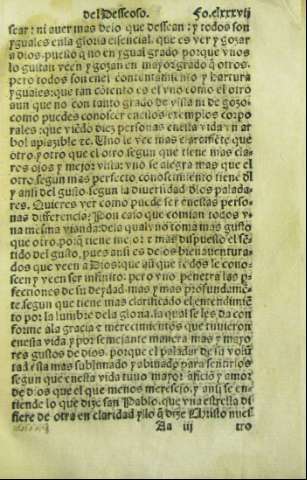 del Desseoso. Fo.clxxxvij
sear: ni auer mas delo que dessean: y todos son
yguales enla gloria essencial, que es ver y gozar
a dios: puesto q̃ no en ygual grado porque vnos
lo gustan veen y gozan en mayor grado q̃ otros.
pero todos son en el contentamiento y hartura
yguales: que tan cõtento es el vno como el otro
aun que no con tanto grado de vista ni de gozo:
como puedes conoscer enlos exemplos corpo
rales: que viẽdo diez personas enesta vida vn ar
bol apazible &c. Uno le vee mas claramẽte que
otro, y otro que el otro segun que tiene mas cla-
ros ojos y mejor vista: vno se alegra mas que el
otro, segun mas perfecto conoscimiento tiene dl
y ansi del gusto, segun la diuersidad dlos palada-
res. Quieres ver como puede ser enestas perso-
nas differencia? Pon caso que comian todos v-
na mesma vianda: dela qual vno toma mas gusto
que otro, porq̃ tiene mejor e mas dispuesto el sẽ-
tido del gusto, pues ansi es de los bienauentura-
dos que veen a Dios: que aũ que todos le cono-
scen y veen ser infinito, pero vno penetra las p-
fectiones de su deydad mas y mas profundamẽ-
te, segun que tiene mas clarificado el entendimiẽ-
to por la lumbre dela gloria, la qual se les da con
forme ala gracia e merecimientos que tuuieron
enesta vida, y por semejante manera mas y mayo
res gustos de dios, porque el paladar de su volũ
tad esta mas sublimado y abiuado para sentirlos
segun que enesta vida tuuo mayor afficiõ y amor
de dios que el que menos merescio, y ansi se en-
tiende lo que dize san Pablo, que vna estrella di
fiere de otra en claridad y lo q̃ dize Christo nues
Aa iij tro